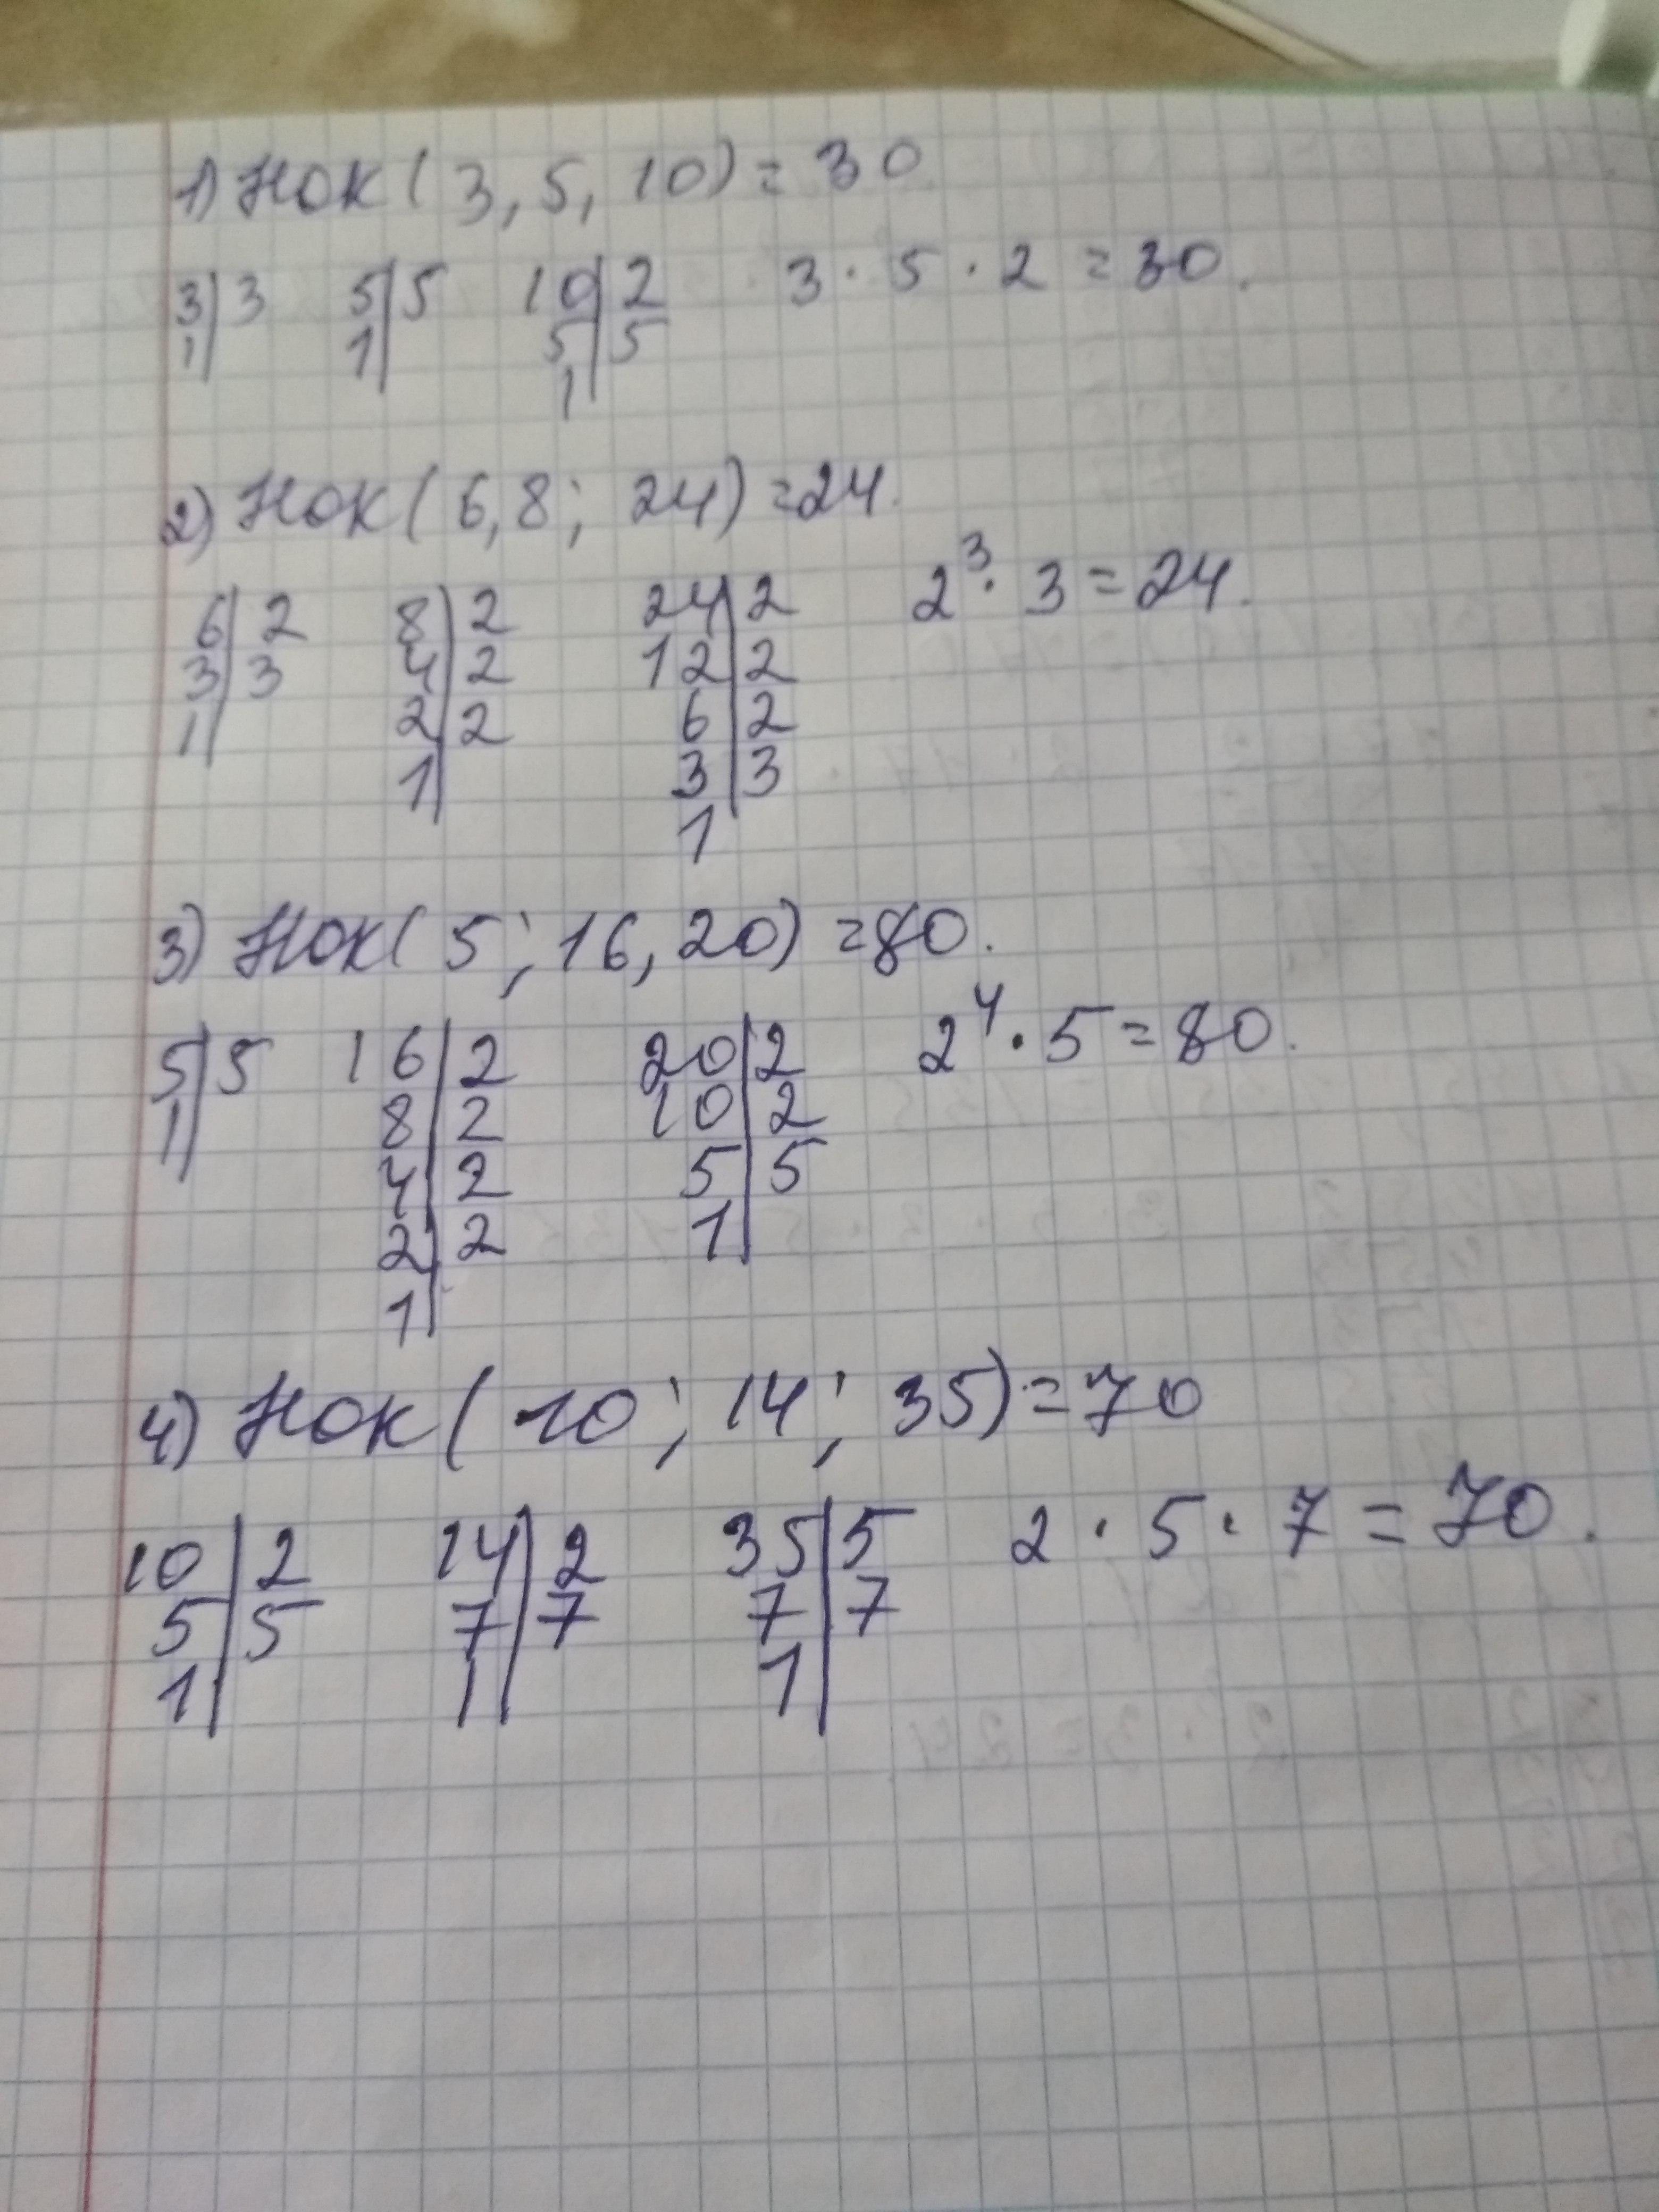 1) НОК(3, 5, 10) = 30
3|3 5|5 10|2 3 · 5 · 2 = 30.
1| 1| 5|5
1
2) НОК(6, 8; 24) = 24.
6|2 8|2 24|2 2³ · 3 = 24.
3|3 4|2 12|2
1| 2|2 6|2
1| 3|3
1
3) НОК(5; 16, 20) = 80.
5|5 16|2 20|2 2⁴ · 5 = 80.
1| 8|2 10|2
4|2 5|5
2|2 1|
1|
4) НОК(10; 14; 35) = 70
10|2 14|2 35|5 2 · 5 · 7 = 70.
5|5 7|7 7|7
1| 1| 1|